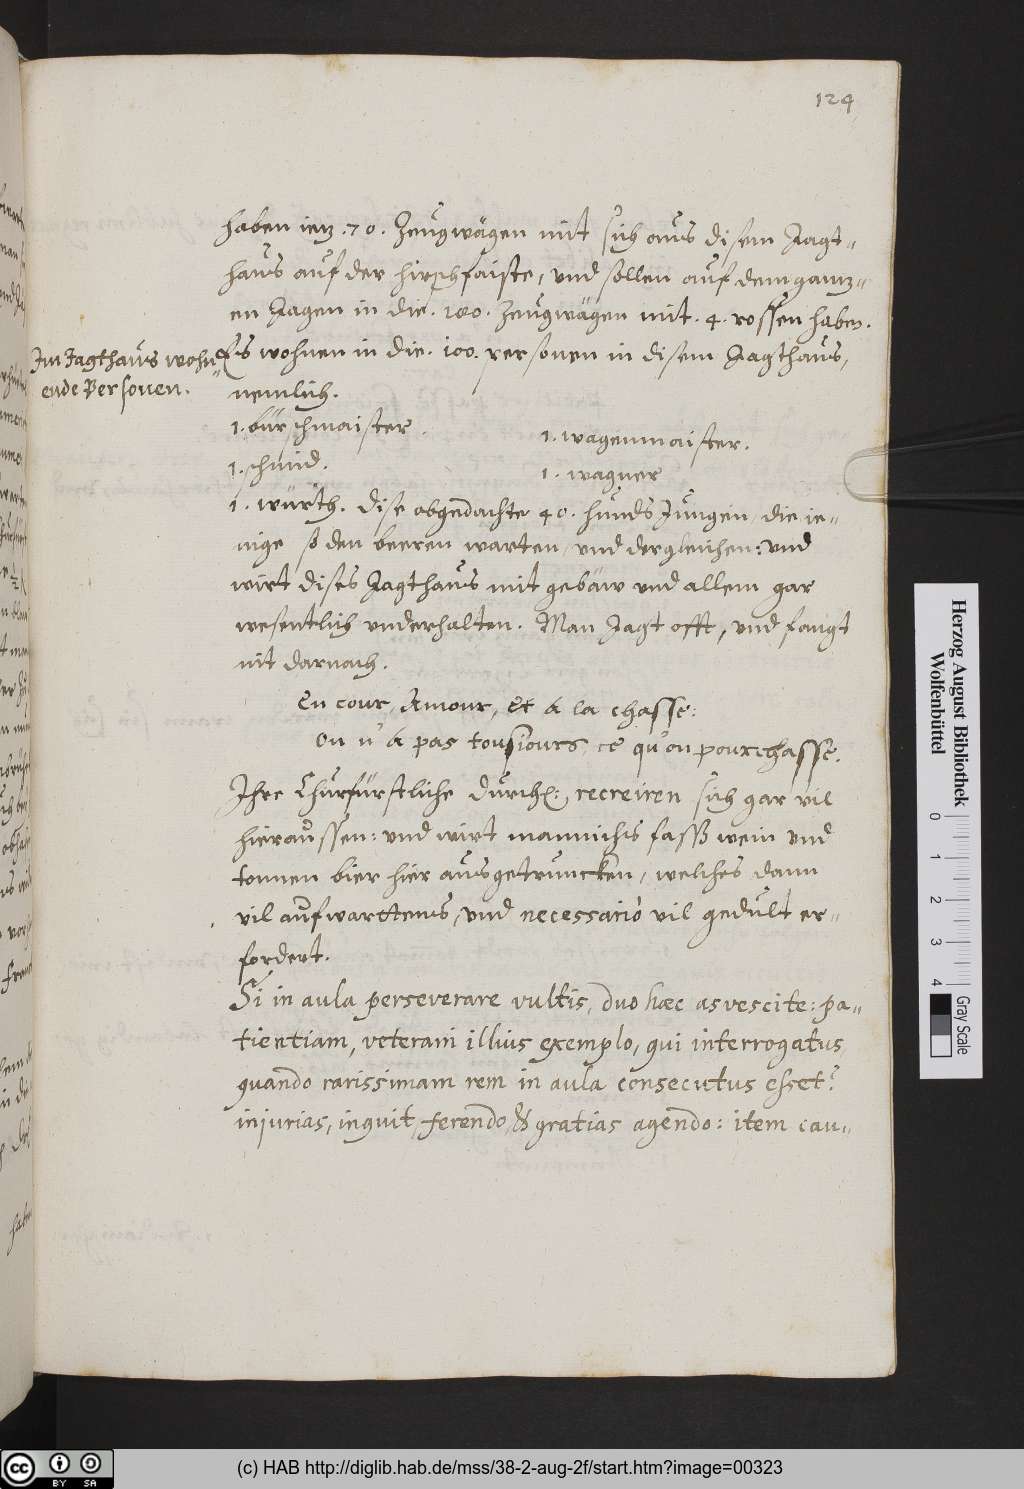 124
haben ietz .70. Zeugwägen mit sich aus disem Jagt-
haus auf der hirschfaiste, und sollen auf dem gantz-
en Jagen in die. 180. Zeugwägen mit. 4. rossen haben.
Im Jagthaus wohn-
ende Personen.
Es wohnen in die. 100. personen in disem Jagthaus,
nemlich.
1. bürschmaister. 1. wagenmaister.
1. schmid. 1. wagner
1. würth. dise obgedachte 40. hunds Jungen, die ie-
nige so den beeren warten, und dergleichen: und
wirt dises Jagthaus mit gebäw und allem gar
wesentlich underhalten. Man Jagt offt, und fangt
nit darnach.
En cour, Amour, Et a la chasse:
on n'a pas tousiours, ce qu'on pourchasse.
Ihre Churfürstliche Durchl: recreiren sich gar vil
hieraussen: und wirt mannichs fass wein und
tonnen bier hier ausgetruncken, welches dann
vil aufwarttens, und necessario vil gedult er-
fordert.
Si in aula perseverare vultis, duo hæc asvescite: pa-
tientiam, veterani illius exemplo, qui interrogatus
quando rarissimam rem in aula consecutus esset?
injurias, inquit, ferendo, & gratias agendo: item cau-
Herzog August Bibliothek
Wolfenbüttel
0 1 2 3 4
Gray Scale
BY SA
(c) HAB http://diglib.hab.de/mss/38-2-aug-2f/start.htm?image=00323